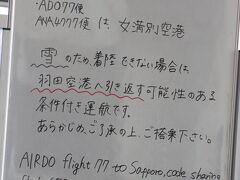 ・ADO77便
ANA4777便 は、女満別空港
雪のため、着陸できない場合は
羽田空港へ引き返す可能性のある
条件付き運航です。
あらかじめ、ご了承の上、ご搭乗下さい。
AIRDO flight 77 to Sapporo, code sharing